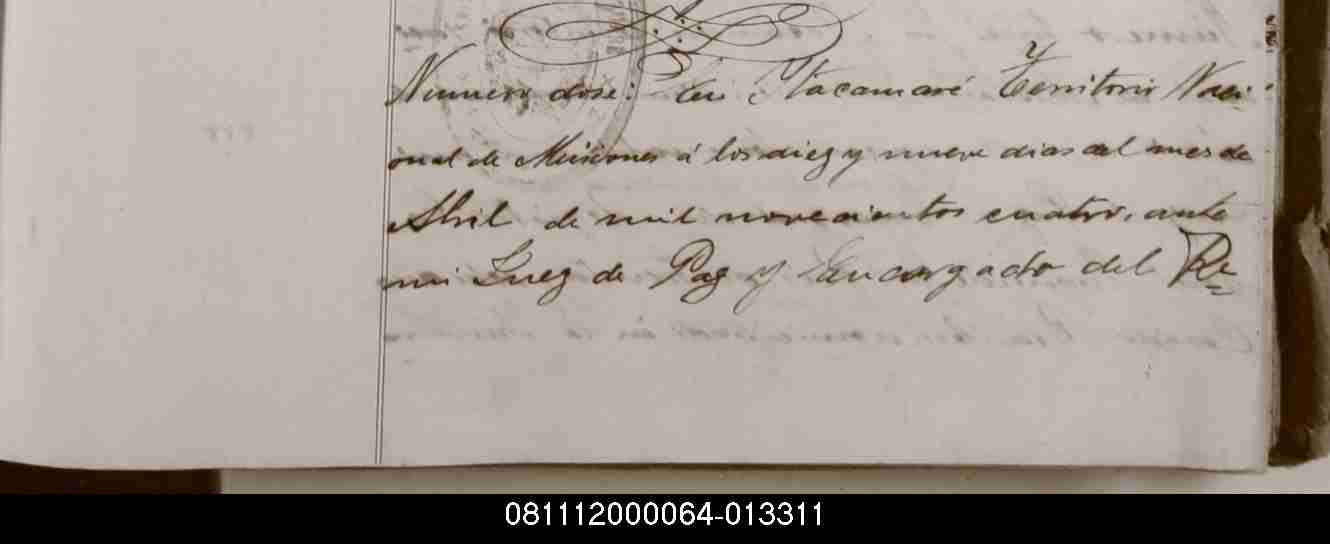 Numero dose: En Itacamaré Territorio Naci-
onal de Misiones á los diez y nueve dias del mes de
Abril de mil novecientos cuatro, ante
mi Juez de Paz y Encargado del Re=
081112000064-013311